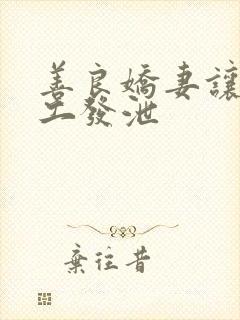 善良嬌妻讓
工發泄
棄往昔